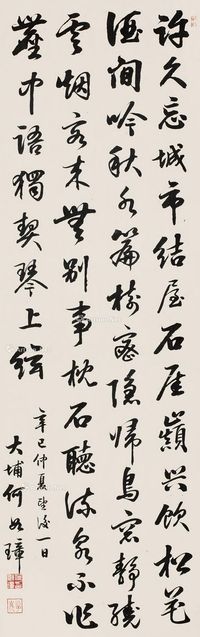 許久忘城市結屋石厓巔興飲松花
酒閒吟秋水篇樹密隱歸鳥窓靜繞
雲烟客来無別事枕石聽流泉不作
塵中語獨契琴上絃
辛巳仲夏望後一日
大埔何如璋